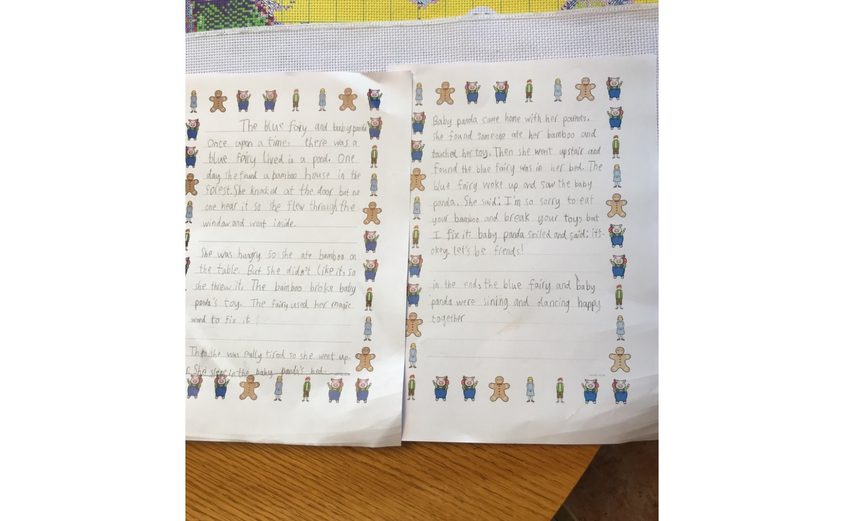 The blue fairy and baby panda
Once upon a time. there was a
blue fairy lived in a pond. One
day she found a bamboo house in the
forest. She knocked at the door but no
one hear it so she flew through the
window and went inside.
She was hungry so she ate bamboo on
the table. But she didn't like it, so
she threw it. The bamboo broke baby
panda's toy. The fairy used her magic
wand to fix it
Then she was really tired so she went up-
She slept in the baby panda's bed.
Baby panda came home with her parents.
She found someone ate her bamboo and
touched her toy. Then she went upstair and
found the blue fairy was in her bed. The
blue fairy woke up and saw the baby
panda. She said: I'm so sorry to eat
your bamboo and break your toys but
I fix it. baby panda smiled and said: it's
okey. let's be friends!
in the end, the blue fairy and baby
panda were sining and dancing happy
together